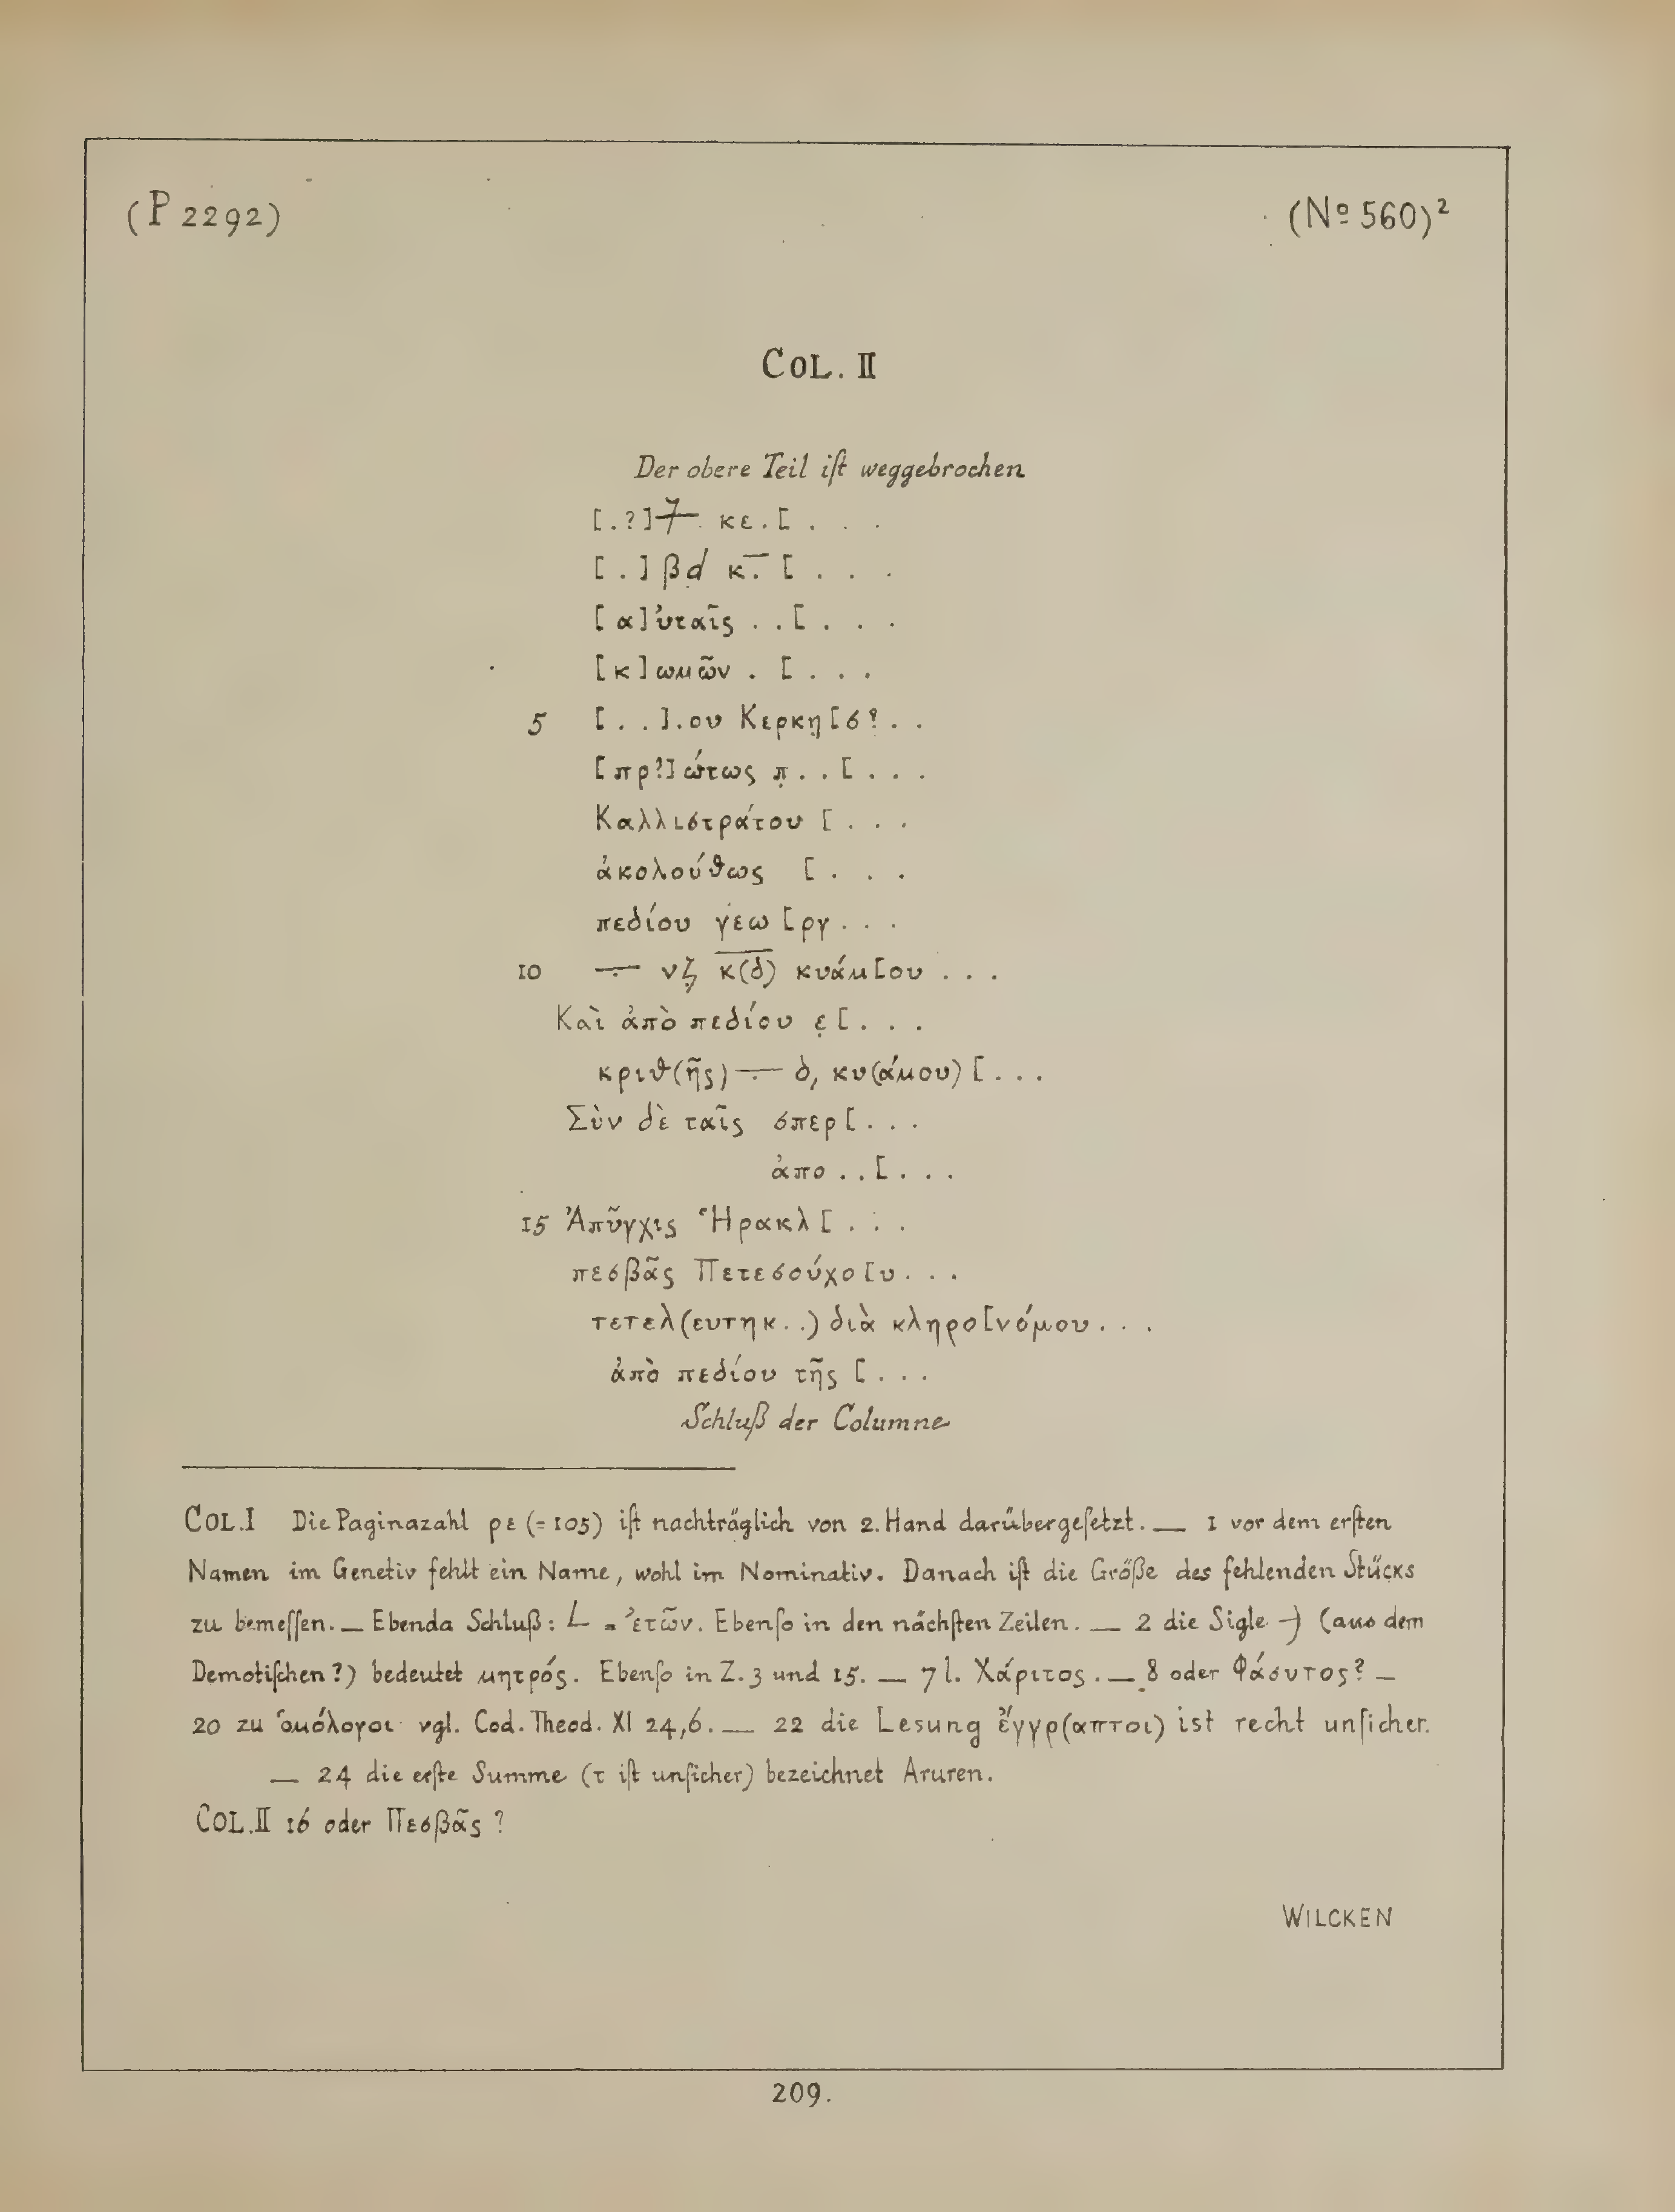 (P 2292)
(No 560)²
COL. II
Der obere Teil iſt weggebrochen
[.?] κε.[ . . .
[.] βd κ.̅ [ . . .
[α]ὐταῖς . . [ . . .
[κ]ωμῶν . [ . . .
5 [. .].ου Κερκη[σ? . .
[πρ?]ώτως π̣ . . [ . . .
Καλλιστράτου [ . . .
ἀκολούθως [ . . .
πεδίου γεω[ργ . . .
10 –̣ νζ̣ κ(δ) κυάμ[ου . . .
Καὶ ἀπὸ πεδίου ε̣[ . . .
κριθ(ῆς) –̣ δ, κυ(άμου) [ . . .
Σὺν δὲ ταῖς σπερ[ . . .
ἀπο . . [ . . .
15 Ἀπῦγχις Ἡρακλ[ . . .
πεσβᾶς Πετεσούχο[υ . . .
τετελ(ευτηκ . .) διὰ κληρο[νόμου . . .
ἀπὸ πεδίου τῆς [ . . .
Schluß der Columne
COL. I Die Paginazahl ρε (= 105) iſt nachträglich von 2. Hand darübergeſetzt. — 1 vor dem erſten
Namen im Genetiv fehlt ein Name, wohl im Nominativ. Danach iſt die Größe des fehlenden Stücks
zu bemeſſen. — Ebenda Schluß: L = ἐτῶν. Ebenſo in den nächſten Zeilen. — 2 die Sigle (aus dem
Demotiſchen?) bedeutet μητρός. Ebenſo in Z. 3 und 15. — 7 l. Χάριτος. — 8 oder Φάσυτος? —
20 zu ὁμόλογοι vgl. Cod. Theod. XI 24,6. — 22 die Lesung ἔγγρ(απτοι) ist recht unſicher.
— 24 die erſte Summe (τ iſt unſicher) bezeichnet Aruren.
COL. II 16 oder Πεσβᾶς ?
WILCKEN
209.